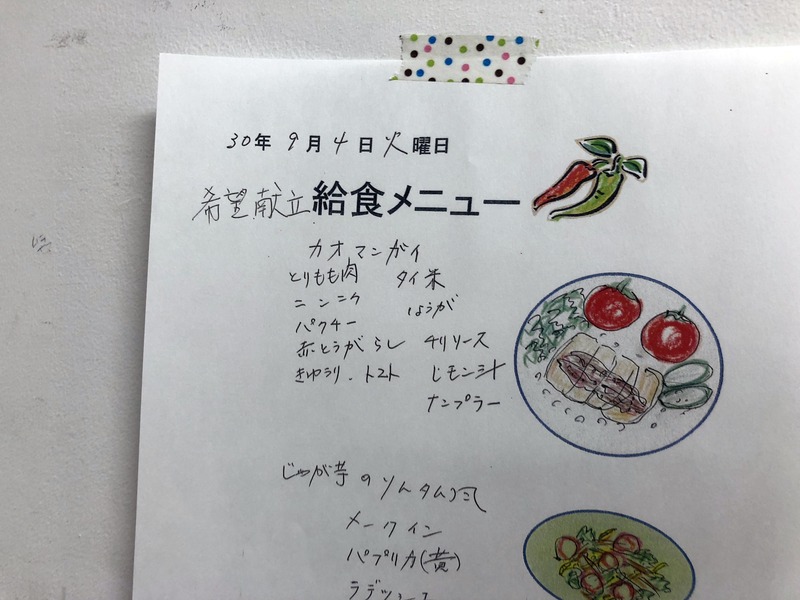 30年 9月 4日 火曜日
希望献立 給食メニュー
カオマンガイ
とりもも肉 タイ米
ニンニク しょうが
パクチー
赤とうがらし チリソース
きゅうり、トマト レモン汁
ナンプラー
じゃが芋のソムタム風
メークイン
パプリカ(黄)